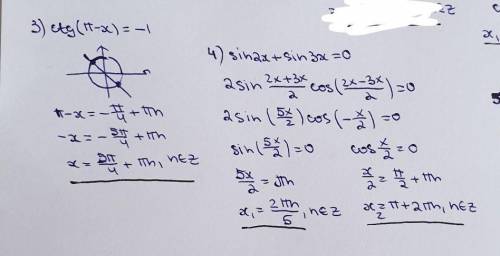 3) ctg(π-x)=-1
π-x=-π/4+πn
-x=-5π/4+πn
x=5π/4+πn, n∈Z
4) sin2x+sin3x=0
2sin (2x+3x)/2 cos((2x-3x)/2)=0
2sin(5x/2)cos(-x/2)=0
sin(5x/2)=0 cos x/2=0
5x/2=πn x/2=π/2+πn
x₁=2πn/5, n∈Z x₂=π+2πn, n∈Z